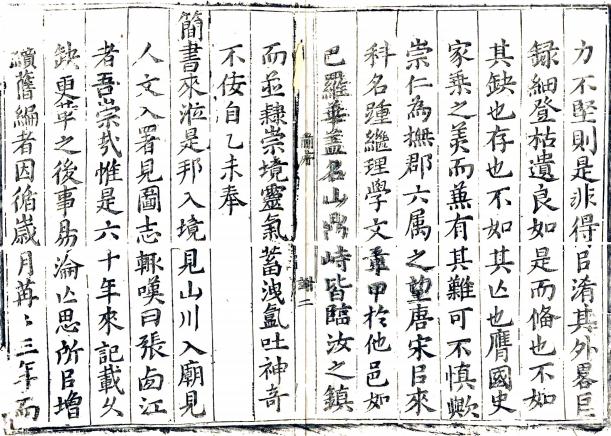 力不堅則是非得㠯淆其外畧巨
録細登枯遺良如是而脩也不如
其缺也存也不如其亾也膺國史
家乗之美而兼有其難可不慎歟
崇仁為撫郡六属之望唐宋㠯來
科名踵繼理學文章甲於他邑如
巴羅華蓋名山鼎峙皆臨汝之鎮
而並隸崇境靈氣蓄洩氳吐神奇
不佞自乙未奉
簡書來涖是邦入境見山川入廟見
人文入署見圖志輙嘆曰張鹵江
者吾崇弐惟是六十年來記載久
缺更革之後事易淪亾思所㠯增
續舊編者因循歲月苒〻三年而